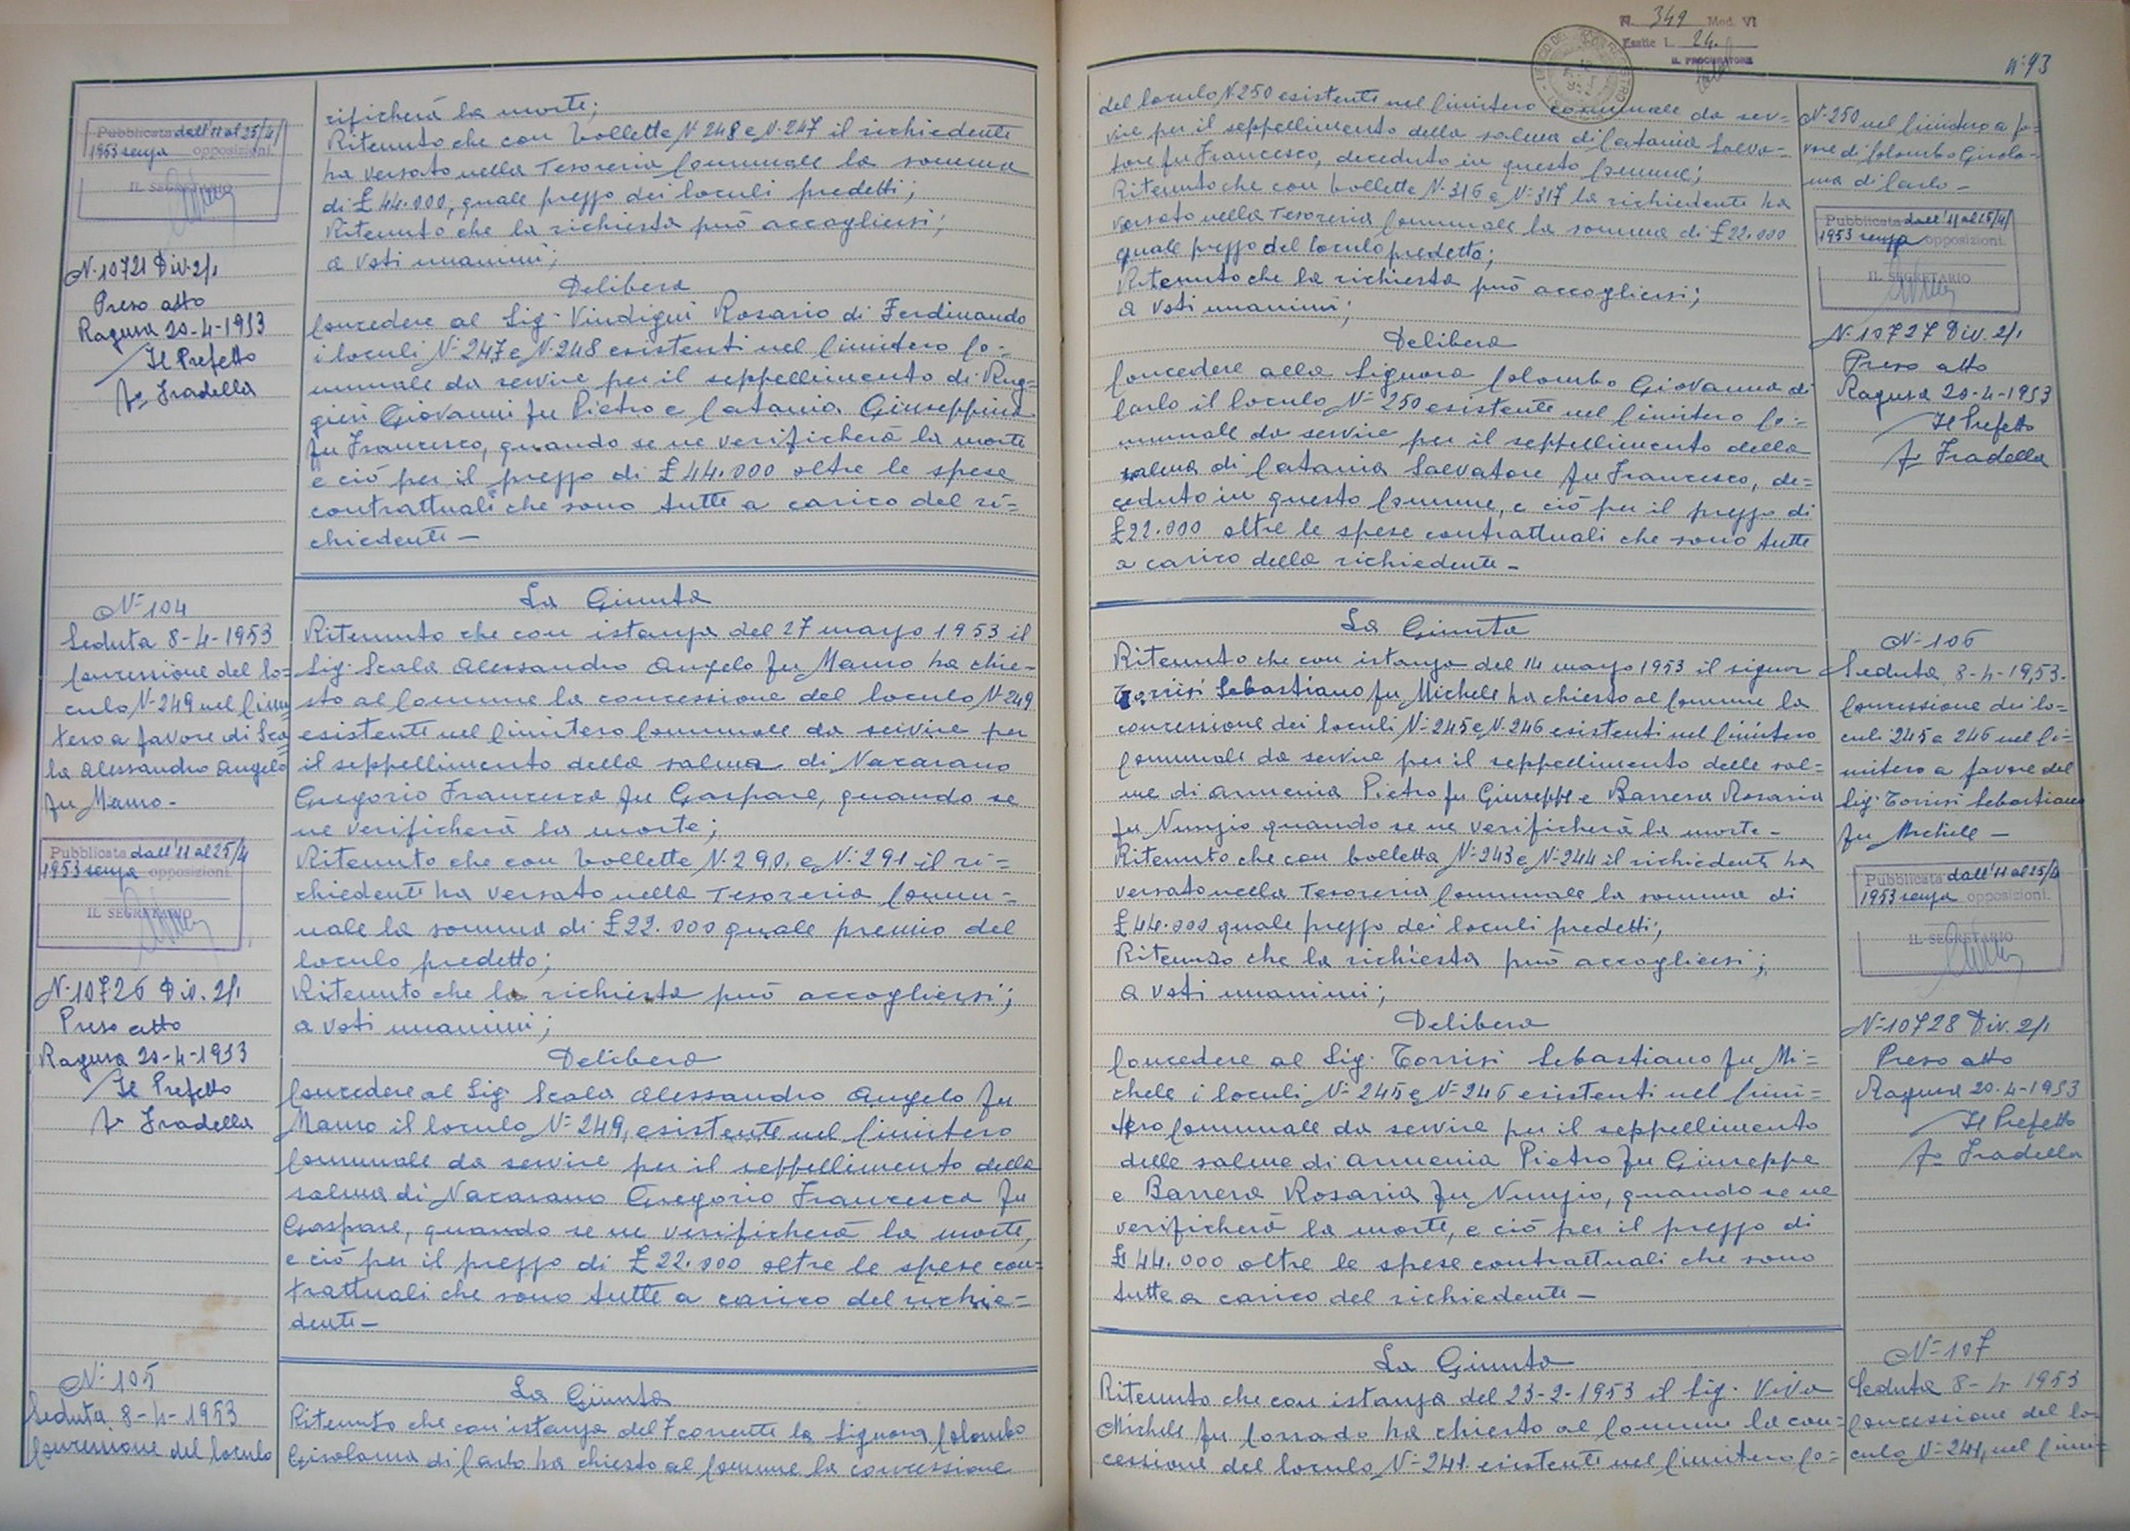 Pubblicata dall'11 al 25/4/
1953 senza opposizioni.
IL SEGRETARIO
N. 10721 Div. 2/1
Preso atto
Ragusa 20-4-1953
Il Prefetto
Fº Fradella
N= 104
Seduta 8-4-1953
Concessione del lo=
culo N= 249 nel Cimi
tero a favore di Sca
la Alessandro Angelo
fu Mauro-
Pubblicata dall'11 al 25/4
1953 senza opposizioni.
IL SEGRETARIO
N. 10726 Div. 2/1
Preso atto
Ragusa 20-4-1953
Il Prefetto
Fº Fradella
N= 105
Seduta 8-4-1953
Concessione del loculo
rificherà la morte;
Ritenuto che con bollette N. 248 e N. 247 il richiedente
ha versato nella Tesoreria Comunale la somma
di £ 44.000, quale prezzo dei loculi predetti;
Ritenuto che la richiesta può accogliersi;
a voti unanimi;
Delibera
Concedere al Sig. Vindigni Rosario di Ferdinando
i loculi N= 247 e N. 248 esistenti nel Cimitero Co=
munale da servire per il seppellimento di Rug=
gieri Giovanni fu Pietro e Catania Giuseppina
fu Francesco, quando se ne verificherà la morte
e ciò per il prezzo di £ 44.000 oltre le spese
contrattuali che sono tutte a carico del ri=
chiedente -
La Giunta
Ritenuto che con istanza del 27 marzo 1953 il
Sig. Scala Alessandro Angelo fu Mauro ha chie-
sto al Comune la concessione del loculo N= 249
esistente nel Cimitero Comunale da servire per
il seppellimento della salma di Nacarano
Gregorio Francesca fu Gaspare, quando se
ne verificherà la morte;
Ritenuto che con bollette N. 290, e N. 291 il ri=
chiedente ha versato nella Tesoreria Comu=
nale la somma di £ 22.000 quale premio del
loculo predetto;
Ritenuto che la richiesta può accogliersi;
a voti unanimi;
Delibera
Concedere al Sig. Scala Alessandro Angelo fu
Mauro il loculo N= 249, esistente nel Cimitero
Comunale da servire per il seppellimento della
salma di Nacarano Gregorio Francesca fu
Gaspare, quando se ne verificherà la morte,
e ciò per il prezzo di £ 22.000 oltre le spese con=
trattuali che sono tutte a carico del richie=
dente -
La Giunta
Ritenuto che con istanza del 7 corrente la Signora Colombo
Girolama di Carlo ha chiesto al Comune la concessione
N. 349 Mod. VI
Esatte L. 24.
IL PROCURATORE
n: 93
del loculo N 250 esistente nel Cimitero comunale da ser-
vire per il seppellimento della salma di Catania Salva-
tore fu Francesco, deceduto in questo Comune;
Ritenuto che con bollette N- 316 e N- 317 la richiedente ha
versato nella Tesoreria Comunale la somma di £ 22.000
quale prezzo del loculo predetto;
Ritenuto che la richiesta può accogliersi;
a voti unanimi;
Delibera
Concedere alla Signora Colombo Giovanna di
Carlo il loculo N= 250 esistente nel Cimitero Co=
munale da servire per il seppellimento della
salma di Catania Salvatore fu Francesco, de=
ceduto in questo Comune, e ciò per il prezzo di
£ 22.000 oltre le spese contrattuali che sono tutte
a carico della richiedente -
La Giunta
Ritenuto che con istanza del 14 marzo 1953 il signor
Torrisi Sebastiano fu Michele ha chiesto al Comune la
concessione dei loculi N= 245 e N. 246 esistenti nel Cimitero
Comunale da servire per il seppellimento delle sal=
me di Armenia Pietro fu Giuseppe e Barrera Rosaria
fu Nunzio quando se ne verificherà la morte-
Ritenuto che con bolletta N= 243 e N= 244 il richiedente ha
versato nella Tesoreria Comunale la somma di
£ 44.000 quale prezzo dei loculi predetti;
Ritenuto che la richiesta può accogliersi;
a voti unanimi;
Delibera
Concedere al Sig. Torrisi Sebastiano fu Mi=
chele i loculi N= 245 e N= 246 esistenti nel Cimi=
tero Comunale da servire per il seppellimento
delle salme di Armenia Pietro fu Giuseppe
e Barrera Rosaria fu Nunzio, quando se ne
verificherà la morte, e ciò per il prezzo di
£ 44.000 oltre le spese contrattuali che sono
tutte a carico del richiedente -
La Giunta
Ritenuto che con istanza del 23-2-1953 il Sig. Viva
Michele fu Corrado ha chiesto al Comune la con=
cessione del loculo N= 241 esistente nel Cimitero Co=
N= 250 nel Cimitero a fa=
vore di Colombo Girola=
ma di Carlo -
Pubblicata dall'11 al 25/4/
1953 senza opposizioni.
IL SEGRETARIO
N. 10727 Div. 2/1
Preso atto
Ragusa 20-4-1953
Il Prefetto
Fº Fradella
N= 106
Seduta 8-4-1953-
Concessione dei lo=
culi 245 e 246 nel Ci=
mitero a favore del
Sig. Torrisi Sebastiano
fu Michele -
Pubblicata dall'11 al 25/4
1953 senza opposizioni.
IL SEGRETARIO
N= 10728 Div. 2/1
Preso atto
Ragusa 20-4-1953
Il Prefetto
Fº Fradella
N= 107
Seduta 8-4- 1953
Concessione del lo-
culo N= 241, nel Cimi=